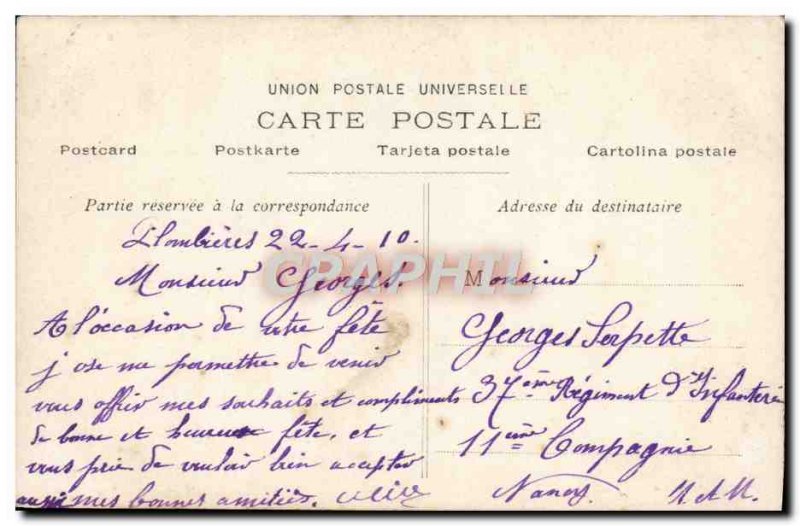 UNION POSTALE UNIVERSELLE
CARTE POSTALE
Postcard Postkarte Tarjeta postale Cartolina postale
Partie réservée à la correspondance
Plombières 22-4-10.
Monsieur Georges.
A l'occasion de votre fête
j'ose me permettre de venir
vous offrir mes souhaits et compliments
de bonne et heureuse fête, et
vous prie de vouloir bien accepter
aussi mes bonnes amitiés.
Adresse du destinataire
Monsieur
Georges Serpette
37ème Régiment d'Infanterie
11ème Compagnie
Nancy. M et M.
CPAPHIL